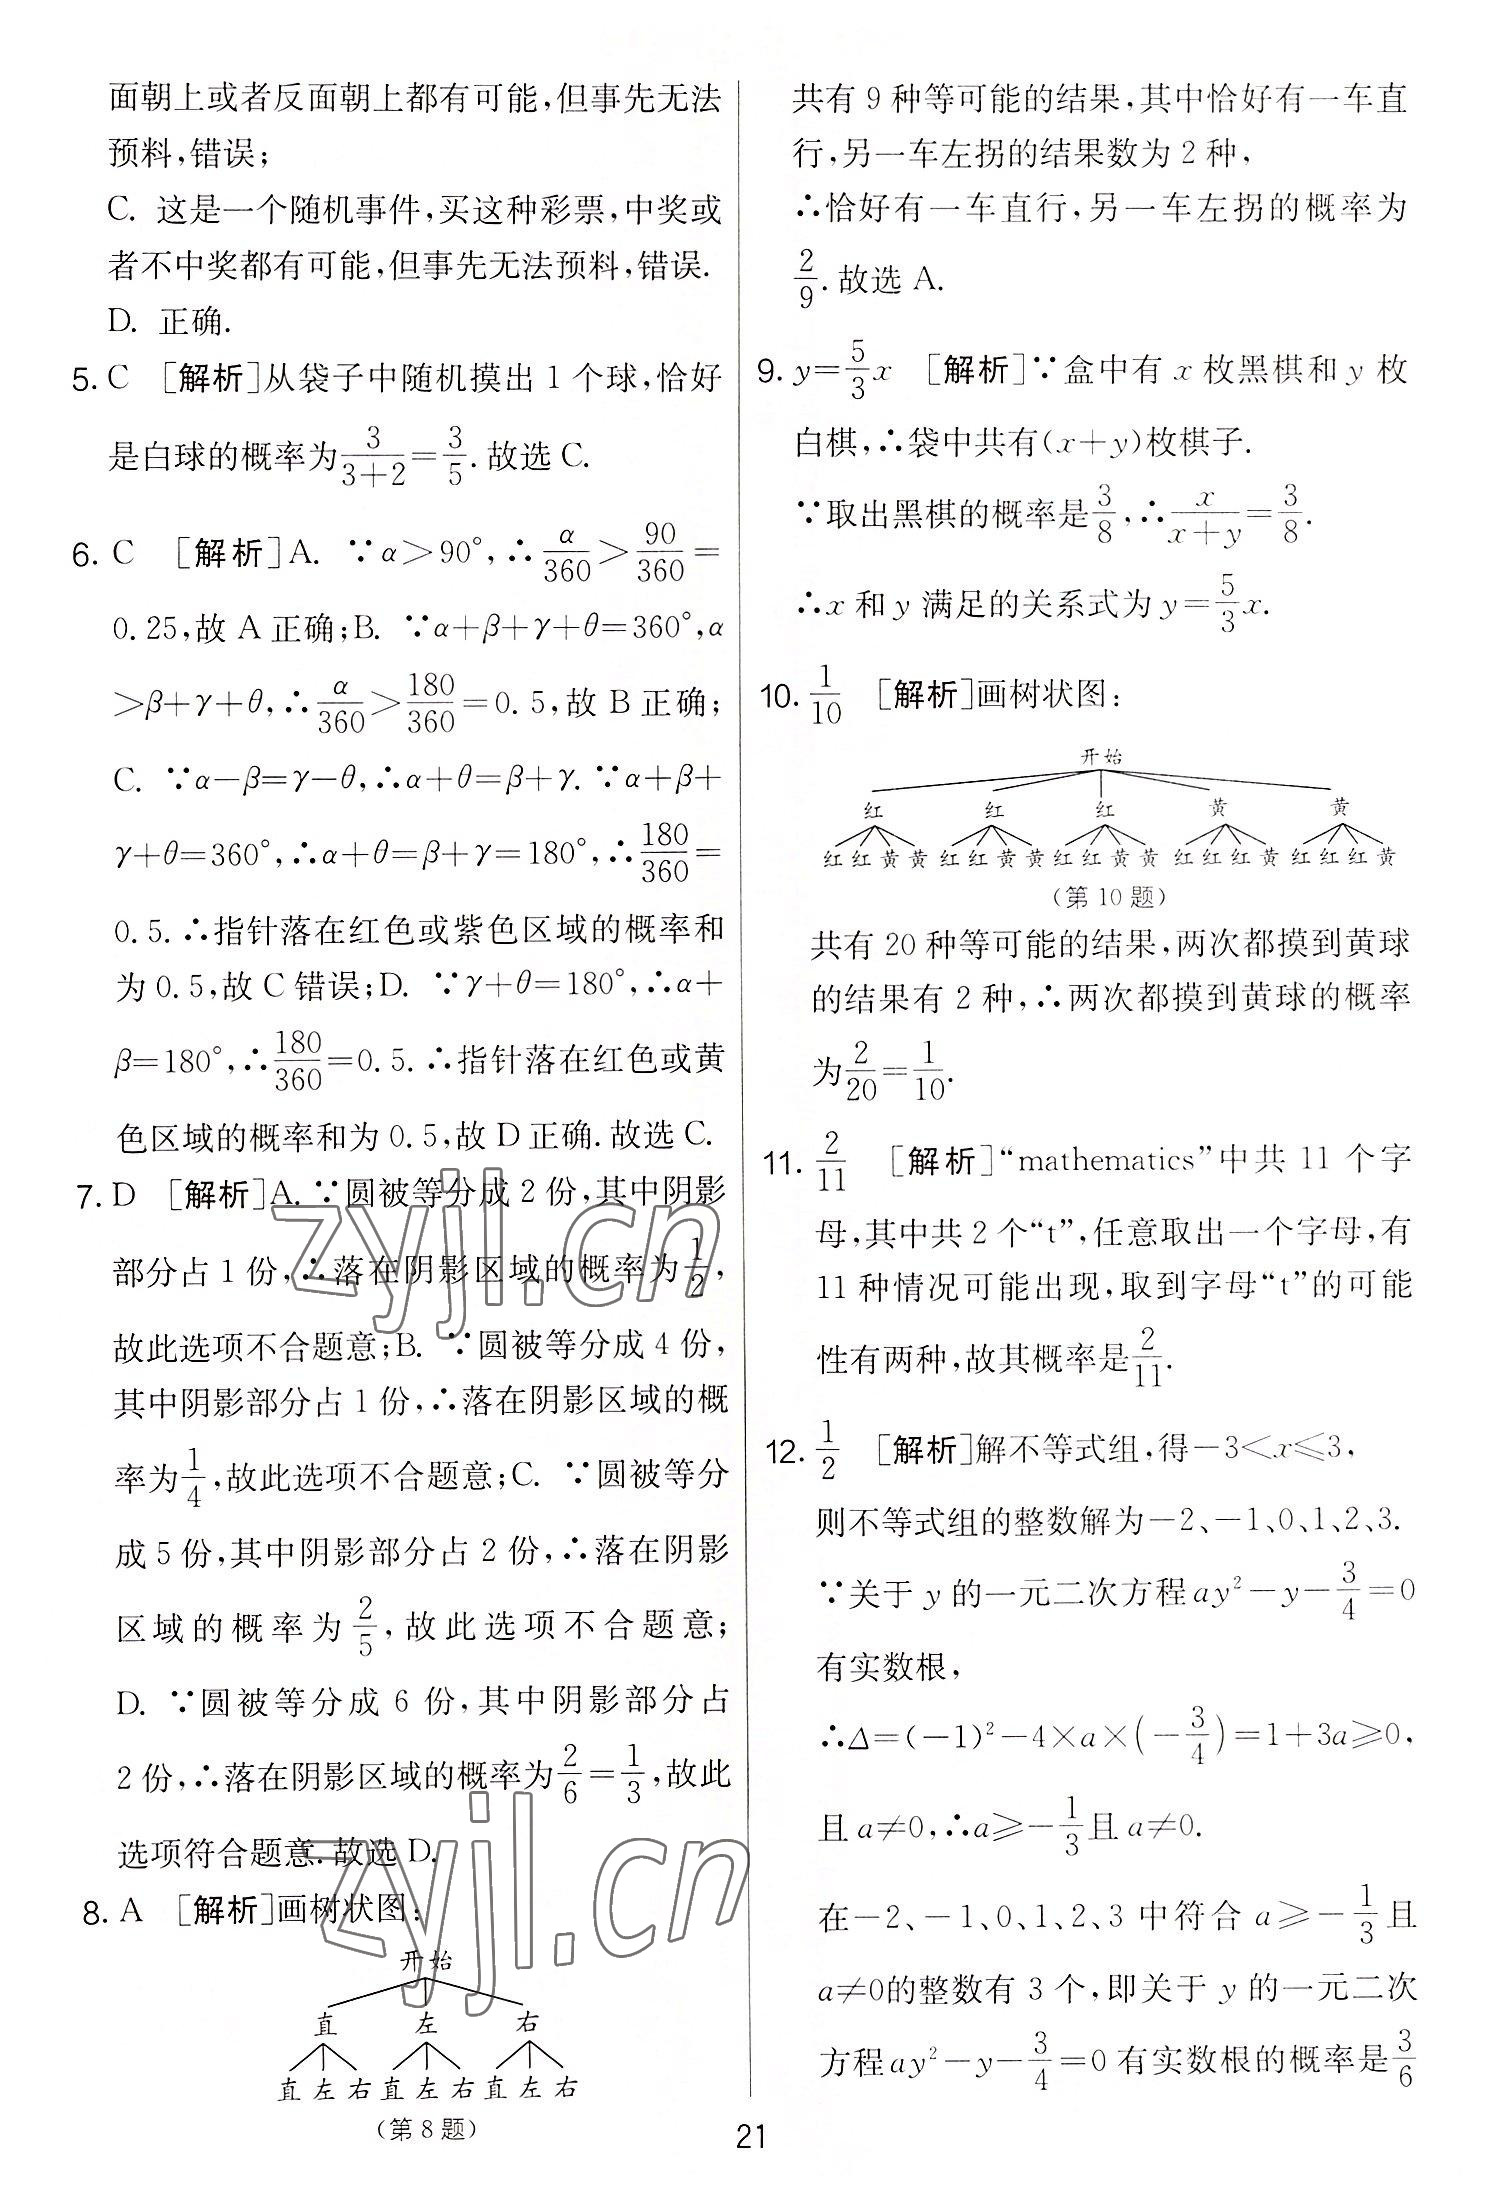 面朝上或者反面朝上都有可能,但事先无法
预料,错误;
C. 这是一个随机事件,买这种彩票,中奖或
者不中奖都有可能,但事先无法预料,错误.
D. 正确.
5. C [解析]从袋子中随机摸出 1 个球,恰好
是白球的概率为3/(3+2)=3/5.故选 C.
6. C [解析]A. ∵α>90°,∴α/360>90/360=
0.25,故 A 正确;B. ∵α+β+γ+θ=360°,α
>β+γ+θ,∴α/360>180/360=0.5,故 B 正确;
C. ∵α-β=γ-θ,∴α+θ=β+γ.∵α+β+
γ+θ=360°,∴α+θ=β+γ=180°,∴180/360=
0.5.∴指针落在红色或紫色区域的概率和
为 0.5,故 C 错误;D. ∵γ+θ=180°,∴α+
β=180°,∴180/360=0.5.∴指针落在红色或黄
色区域的概率和为 0.5,故 D 正确.故选 C.
7. D [解析]A.∵圆被等分成 2 份,其中阴影
部分占 1 份,∴落在阴影区域的概率为1/2,
故此选项不合题意;B. ∵圆被等分成 4 份,
其中阴影部分占 1 份,∴落在阴影区域的概
率为1/4,故此选项不合题意;C. ∵圆被等分
成 5 份,其中阴影部分占 2 份,∴落在阴影
区域的概率为2/5,故此选项不合题意;
D. ∵圆被等分成 6 份,其中阴影部分占
2 份,∴落在阴影区域的概率为2/6=1/3,故此
选项符合题意.故选 D.
8. A [解析]画树状图:
开始
直 左 右
直 左 右 直 左 右 直 左 右
(第 8 题)
共有 9 种等可能的结果,其中恰好有一车直
行,另一车左拐的结果数为 2 种,
∴恰好有一车直行,另一车左拐的概率为
2/9.故选 A.
9. y=5/3x [解析]∵盒中有 x 枚黑棋和 y 枚
白棋,∴袋中共有(x+y)枚棋子.
∵取出黑棋的概率是3/8,∴x/(x+y)=3/8.
∴x 和 y 满足的关系式为 y=5/3x.
10. 1/10 [解析]画树状图:
开始
红 红 红 黄 黄
红 红 黄 黄 红 红 黄 黄 红 红 黄 黄 红 红 红 黄 红 红 红 黄
(第 10 题)
共有 20 种等可能的结果,两次都摸到黄球
的结果有 2 种,∴两次都摸到黄球的概率
为2/20=1/10.
11. 2/11 [解析]“mathematics”中共 11 个字
母,其中共 2 个“t”,任意取出一个字母,有
11 种情况可能出现,取到字母“t”的可能
性有两种,故其概率是2/11.
12. 1/2 [解析]解不等式组,得-3<x≤3,
则不等式组的整数解为-2、-1、0、1、2、3.
∵关于 y 的一元二次方程 ay²-y-3/4=0
有实数根,
∴Δ=(-1)²-4×a×(-3/4)=1+3a≥0,
且 a≠0,∴a≥-1/3且 a≠0.
在-2、-1、0、1、2、3 中符合 a≥-1/3且
a≠0的整数有 3 个,即关于 y 的一元二次
方程 ay²-y-3/4=0 有实数根的概率是3/6
21
zyjl.cn
zyjl.cn